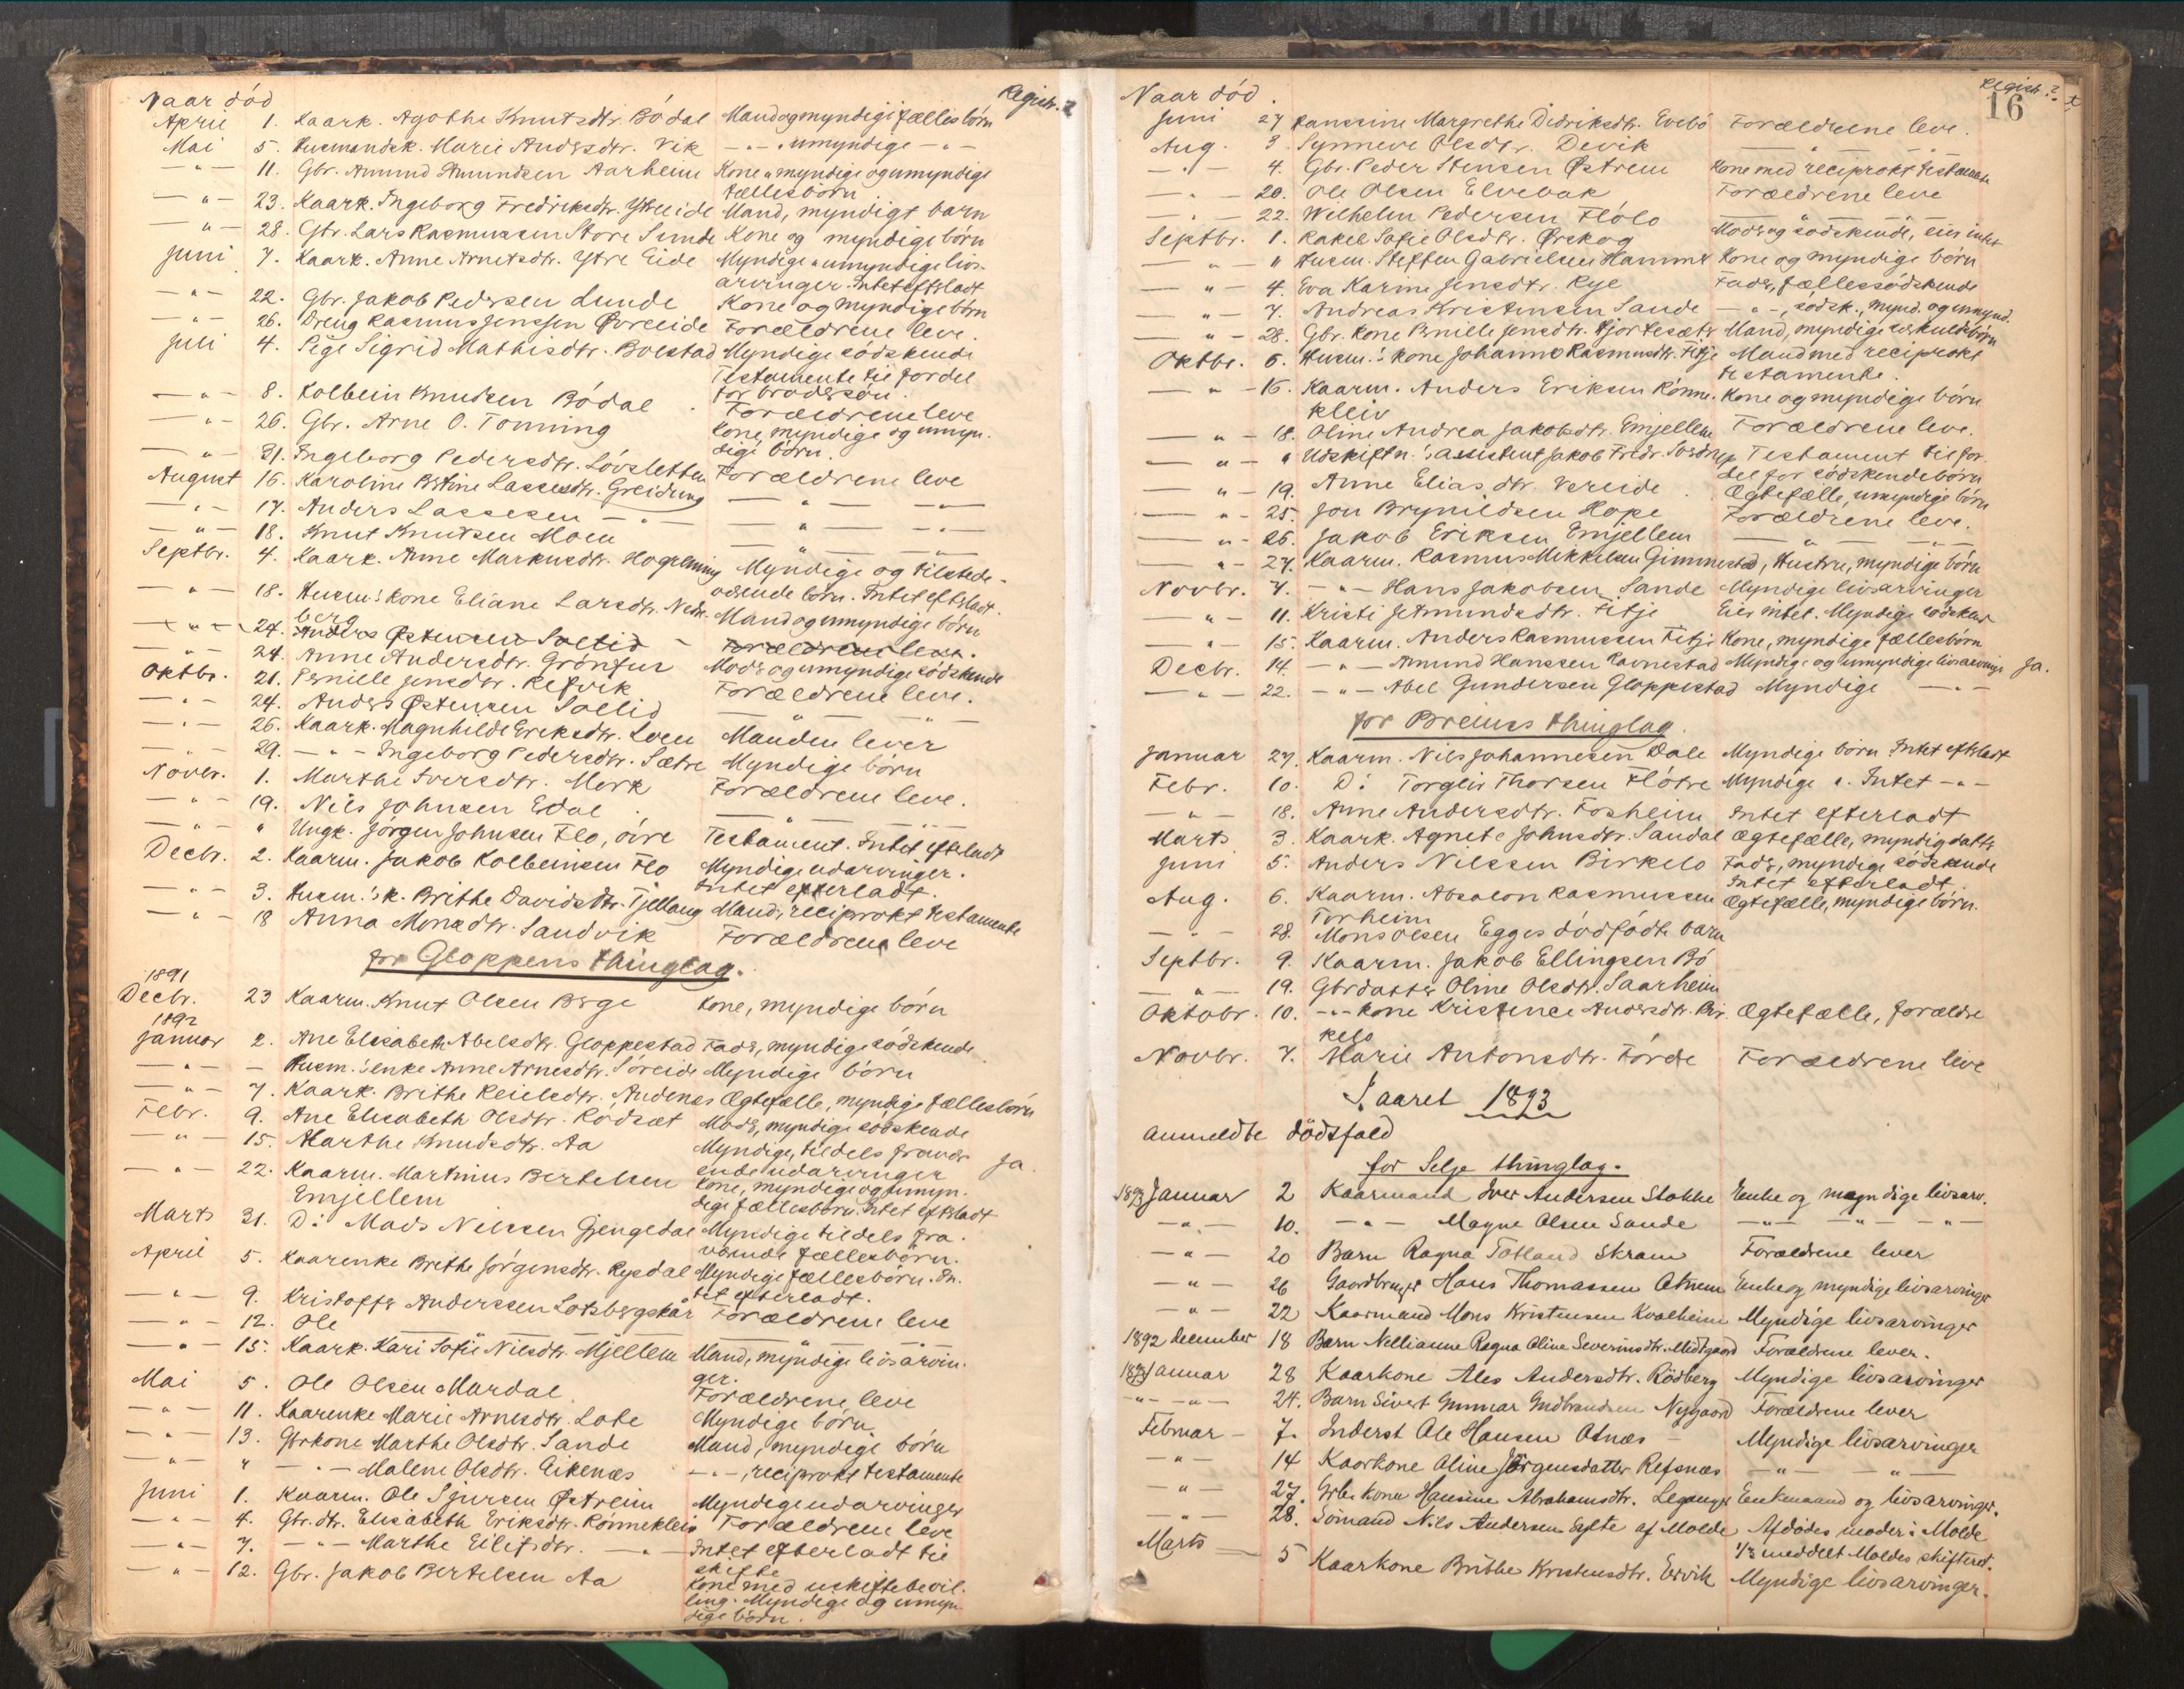 Naar död Registr. ?
April 1. Kaark. Agothe Knutsdtr. Bödal Mand og myndige fællesbörn
Mai 5. Husmandsk. Marie Andersdtr. Vik — " — umyndige — " —
— " — 11. Gbr. Amund Amundsen Aarheim Kone, myndige og umyndige
fællesbörn
— " — 23. Kaark. Ingeborg Fredriksdtr. Ytreeide Mand, myndigt barn
— " — 28. Gbr. Lars Rasmussen Store Sunde Kone og myndige börn
Juni 7. Kaark. Anne Arnetsdtr. Ytre Eide Myndige " umyndige livs-
arvinger. Intet efterladt
— " — 22. Gbr. Jakob Pedersen Lunde Kone og myndige börn
— " — 26. Dreng Rasmus Jenssen Övreeide Forældrene leve.
Juli 4. Pige Sigrid Mathisdtr. Bolstad Myndige södskende
Testamente til fordel
for brodersön.
— " — 8. Kolbein Knudsen Bödal Forældrene leve
— " — 26. Gbr. Arne O. Tonning Kone, myndige og umyn-
dige börn.
— " — 31. Ingeborg Pedersdtr. Lövsletten Forældrene leve
August 16. Karoline Bertine Lassesdtr. Greidung — " —
— " — 17. Anders Lassesen — " — — " —
— " — 18. Knut Knutsen Moen — " —
Septbr. 4. Kaark. Anne Markusdtr. Hogrenning Myndige og tilstede-
værende börn. Intet efterladt.
— " — 18. Husm.s kone Eliane Larsdtr. Neder-
berg Mand og umyndige börn
— " — 24. Anders Östensen Sollid — Forældrene leve.
— " — 24. Anne Andersdtr. Grönfur Moder og umyndige södskende
Oktbr. 21. Pernille Jensdtr. Refvik Forældrene leve.
— " — 24. Anders Östensen Sollid — " —
— " — 26. Kaark. Magnhilde Eriksdtr. Loen Manden lever
— " — 29. — " — Ingeborg Pedersdtr. Sætre Myndige börn
Novbr. 1. Marthe Iversdtr. Merk Forældrene leve.
— " — 19. Nils Johnsen Edal — " —
— " — " Ungk. Jörgen Johnsen Flo, öire Testament. Intet efterladt
Decbr. 2. Kaarm. Jakob Kolbeinsen Flo Myndige udarvinger.
Intet efterladt.
— " — 3. Husm.s k. Brithe Davidsdtr. Tjellaug Mand, reciprokt testamente
— " — 18 Anna Monsdtr. Sandvik Forældrene leve
for Gloppens thinglag.
1891
Decbr. 23 Kaarm. Knut Olsen Berge Kone, myndige börn
1892
Januar 2. Ane Elisabeth Abelsdtr. Gloppestad Fader, myndige södskende
— " — — Husm.s enke Anne Arnesdtr. Söreide Myndige börn
— " — 7. Kaark. Brithe Reielsdtr. Andenes Ægtefælle, myndige fællesbörn
Febr. 9. Ane Elisabeth Olsdtr. Rödsæt Moder, myndige södskende
— " — 15. Marthe Knudsdtr. Aa Myndige, tildels fravær-
ende udarvinger Ja.
— " — 22. Kaarm. Martinus Bertelsen
Emjellem Kone, myndige og umyn-
dige fællesbörn. Intet efterladt
Marts 31. D: Mads Nilssen Gjengedal Myndige tildels fra-
værende fællesbörn.
April 5. Kaarenke Brithe Jörgensdtr. Rysdal Myndige fællesbörn. In-
tet efterladt.
— " — 9. Kristoffer Anderssen Lotsbergskår Forældrene leve
— " — 12. Ole — " — — " —
— " — 15. Kaark. Kari Sofie Nilsdtr. Mjellem Mand, myndige livsarvin-
ger.
Mai 5. Ole Olsen Mardal Forældrene leve
— " — 11. Kaarenke Marie Arnesdtr. Lote Myndige börn
— " — 13. Gbrkone Marthe Olsdtr. Sande Mand, myndige börn
— " — " — " — Malene Olsdtr. Eikenæs — " —, reciprokt testamente
Juni 1. Kaarm. Ole Sjursen Østreim Myndige udarvinger
— " — 4. Gbr. dtr. Elisabeth Eriksdtr. Rönnekleiv Forældrene leve
— " — 7. — " — Marthe Eilifsdtr. — " — Intet efterladt til
skifte
— " — 12. Gbr. Jakob Bertelsen Aa Kone med uskiftebevil-
ling. Myndige og umyn-
dige börn.
Naar död. Registr. ?
16
Juni 27 Hanssine Margrethe Didriksdtr. Evebö Forældrene leve.
Aug. 3. Synneve Olsdtr. Devik — " —
— " — 4. Gbr. Peder Stensen Østrem Kone med reciprokt testamente
— " — 20. Ole Olsen Elvebak Forældrene leve
— " — 22. Wilhelm Pedersen Flölo — " —
Septbr. 1. Rakel Sofie Olsdtr. Ørskog Moder og södskende, eier intet
— " — " Husm. Steffen Gabrielsen Hammer Kone og myndige börn
— " — 4. Eva Karine Jensdtr. Rye Fader, fællessödskende
— " — 7. Andreas Kristensen Sande — " —, södsk., mynd. og umynd.
— " — 28. Gbr. kone Pernille Jensdtr. Hjortesæter Mand, myndige særkuldsbörn
Oktbr. 6. Husm.s kone Johanne Rasmusdtr. Fitje Mand med reciprokt
testamente.
— " — 16. Kaarm. Anders Eriksen Rönne-
kleiv Kone og myndige börn
— " — 18. Oline Andrea Jakobsdtr. Emjellem Forældrene leve.
— " — " Udskiftn.s assistent Jakob Fredr. Testament til for-
del for södskendebörn
— " — 19. Anne Eliasdtr. Vereide Ægtefælle, umyndige börn
— " — 25. Jon Brynildsen Hope Forældrene leve.
— " — 26. Jakob Eriksen Emjellem — " —
— " — 27. Kaarm. Rasmus Mikkelsen Gimmestad, Hustru, myndige börn
Novbr. 7. — " — Hans Jakobsen Sande Myndige livsarvinger
— " — 11. Kristi Jetmundsdtr. Fitje Eier intet. Myndige södskende
— " — 15. Kaarm. Anders Rasmussen Fitje Kone, myndige fællesbörn
Decbr. 14. — " — Amund Hanssen Ravnestad Myndige og umyndige livsarvinger Ja.
— " — 22. — " — Abel Gundersen Gloppestad Myndige — " —
for Breims thinglag
Januar 27. Kaarm. Nils Johannesen Dale Myndige börn Intet efterladt
Febr. 10. D: Torgler Thorsen Flötre Myndige ". Intet — " —
— " — 18. Anne Andersdtr. Fosheim Intet efterladt
Marts 3. Kaark. Agnete Johnsdtr. Sandal Ægtefælle, myndig datter
Juni 5. Anders Nilssen Birkelo Fader, myndige södskende
Intet efterladt.
Aug. 6. Kaarm. Absalon Rasmussen
Forheim Ægtefælle, myndige börn.
— " — 28. Mons Olsen Egges dödfödte barn
Septbr. 9. Kaarm. Jakob Ellingsen Bö
— " — 19. Gbrdatter Oline Olsdtr. Saarheim
Oktobr. 10. — " — kone Kristence Andersdtr. Bir-
kelo Ægtefælle, forældre
Novbr. 7. Marie Antonsdtr. Förde Forældrene leve
I aaret 1893
anmeldte dödsfald
for Selje thinglag.
1893 Januar 2 Kaarmand Iver Andersen Stokke Enke og myndige livsarv.
— " — 10. — " — Magne Olsen Sande — " — — " — — " —
— " — 20 Barn Ragna Totland Skram Forældrene lever
— " — 26 Gaardbruger Hans Thomassen Otnem Enke og myndige livsarvinger
— " — 22 Kaarmand Mons Kristensen Kvalheim Myndige livsarvinger
1892 December 18 Barn Nellianne Ragna Oline Severinsdtr. Midtgaard Forældrene lever.
1893 Januar 28 Kaarkone Ales Andersdtr. Rödberg Myndige livsarvinger
— " — " — 24. Barn Sivert Gunnar Gudbrandsen Nygaard Forældrene lever
Februar — 7. Inderst Ole Hansen Otnæs — Myndige livsarvinger
— " — 14 Kaarkone Oline Jörgensdatter Refsnæs — " — — " —
— " — 27. Grbr. kone Hansine Abrahamsdtr. Leganger Enkemand og livsarvinger.
— " — 28. Sömand Nils Andersen Sylte af Molde Afdödes moder i Molde
1/3 meddelt Moldes skifteret.
Marts — 5 Kaarkone Brithe Kristensdtr. Ervik Myndige livsarvinger.